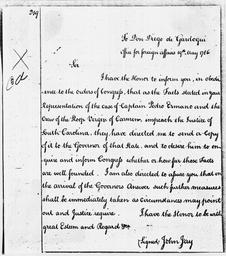 To Don Diego de Gardoqui
Office for foreign affairs 19th May 1786
Sir
I have the Honor to inform you, in obedi-
ence to the orders of Congress, that as the Facts stated in your
Representation of the case of Captain Pedro Ermano and the
Crew of the Ship Virgin of Carmen, impeach the Justice of
South Carolina, they have directed me to send a copy
of it to the Governor of that State, and to desire him to en-
quire and inform Congress whether or how far these Facts
are well founded. I am also directed to assure you that on
the arrival of the Governors Answer such further measures
shall be immediately taken as Circumstances may point
out and Justice require. I have the Honor to be with
great Esteem and Regard &c
Signed John Jay